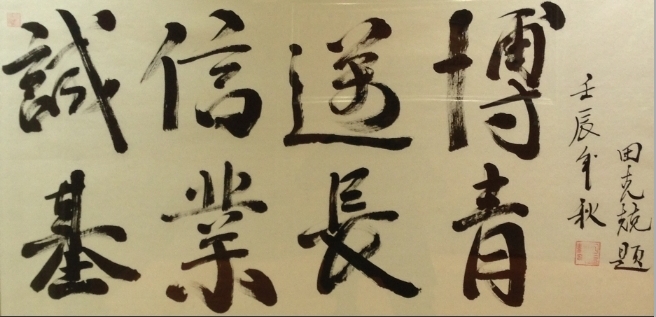 誠信邁博
基業長青
壬辰年秋
田克兢题